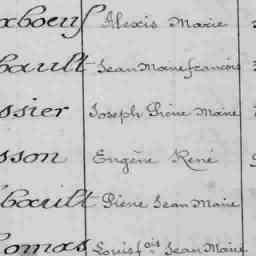 xboeuf Alexis Marie
bault Jean Marie françois
ssier Joseph Pierre Marie
sson Eugène René
bault Pierre Jean Marie
homas Louis fois Jean Marie